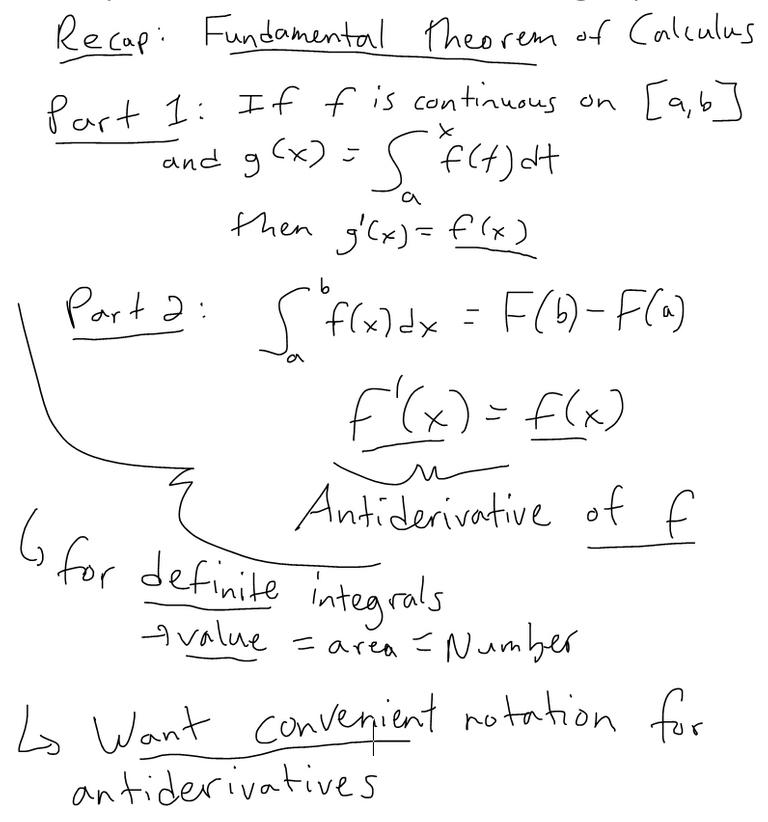 Recap: Fundamental Theorem of Calculus
Part 1: If f is continuous on [a,b]
and g(x) = ∫ₐˣ f(t)dt
then g'(x) = f(x)
Part 2: ∫ₐᵇ f(x)dx = F(b) - F(a)
F'(x) = f(x)
Antiderivative of f
↳ for definite integrals
→ value = area = Number
↳ Want convenient notation for
antiderivatives